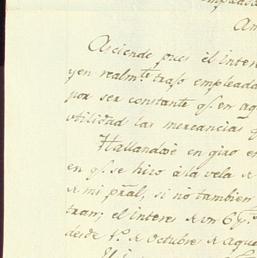 An
Asciende pues el intere
yen realmte. trafo empleada
por ser constante qe. en aq
utilidad las mercancias q
Hallandose en giro en
en qe. se hizo à la vela a
a mi pral, si no tambien
tran; el interes a un 6 p
desde 1o. a Octubre a aque